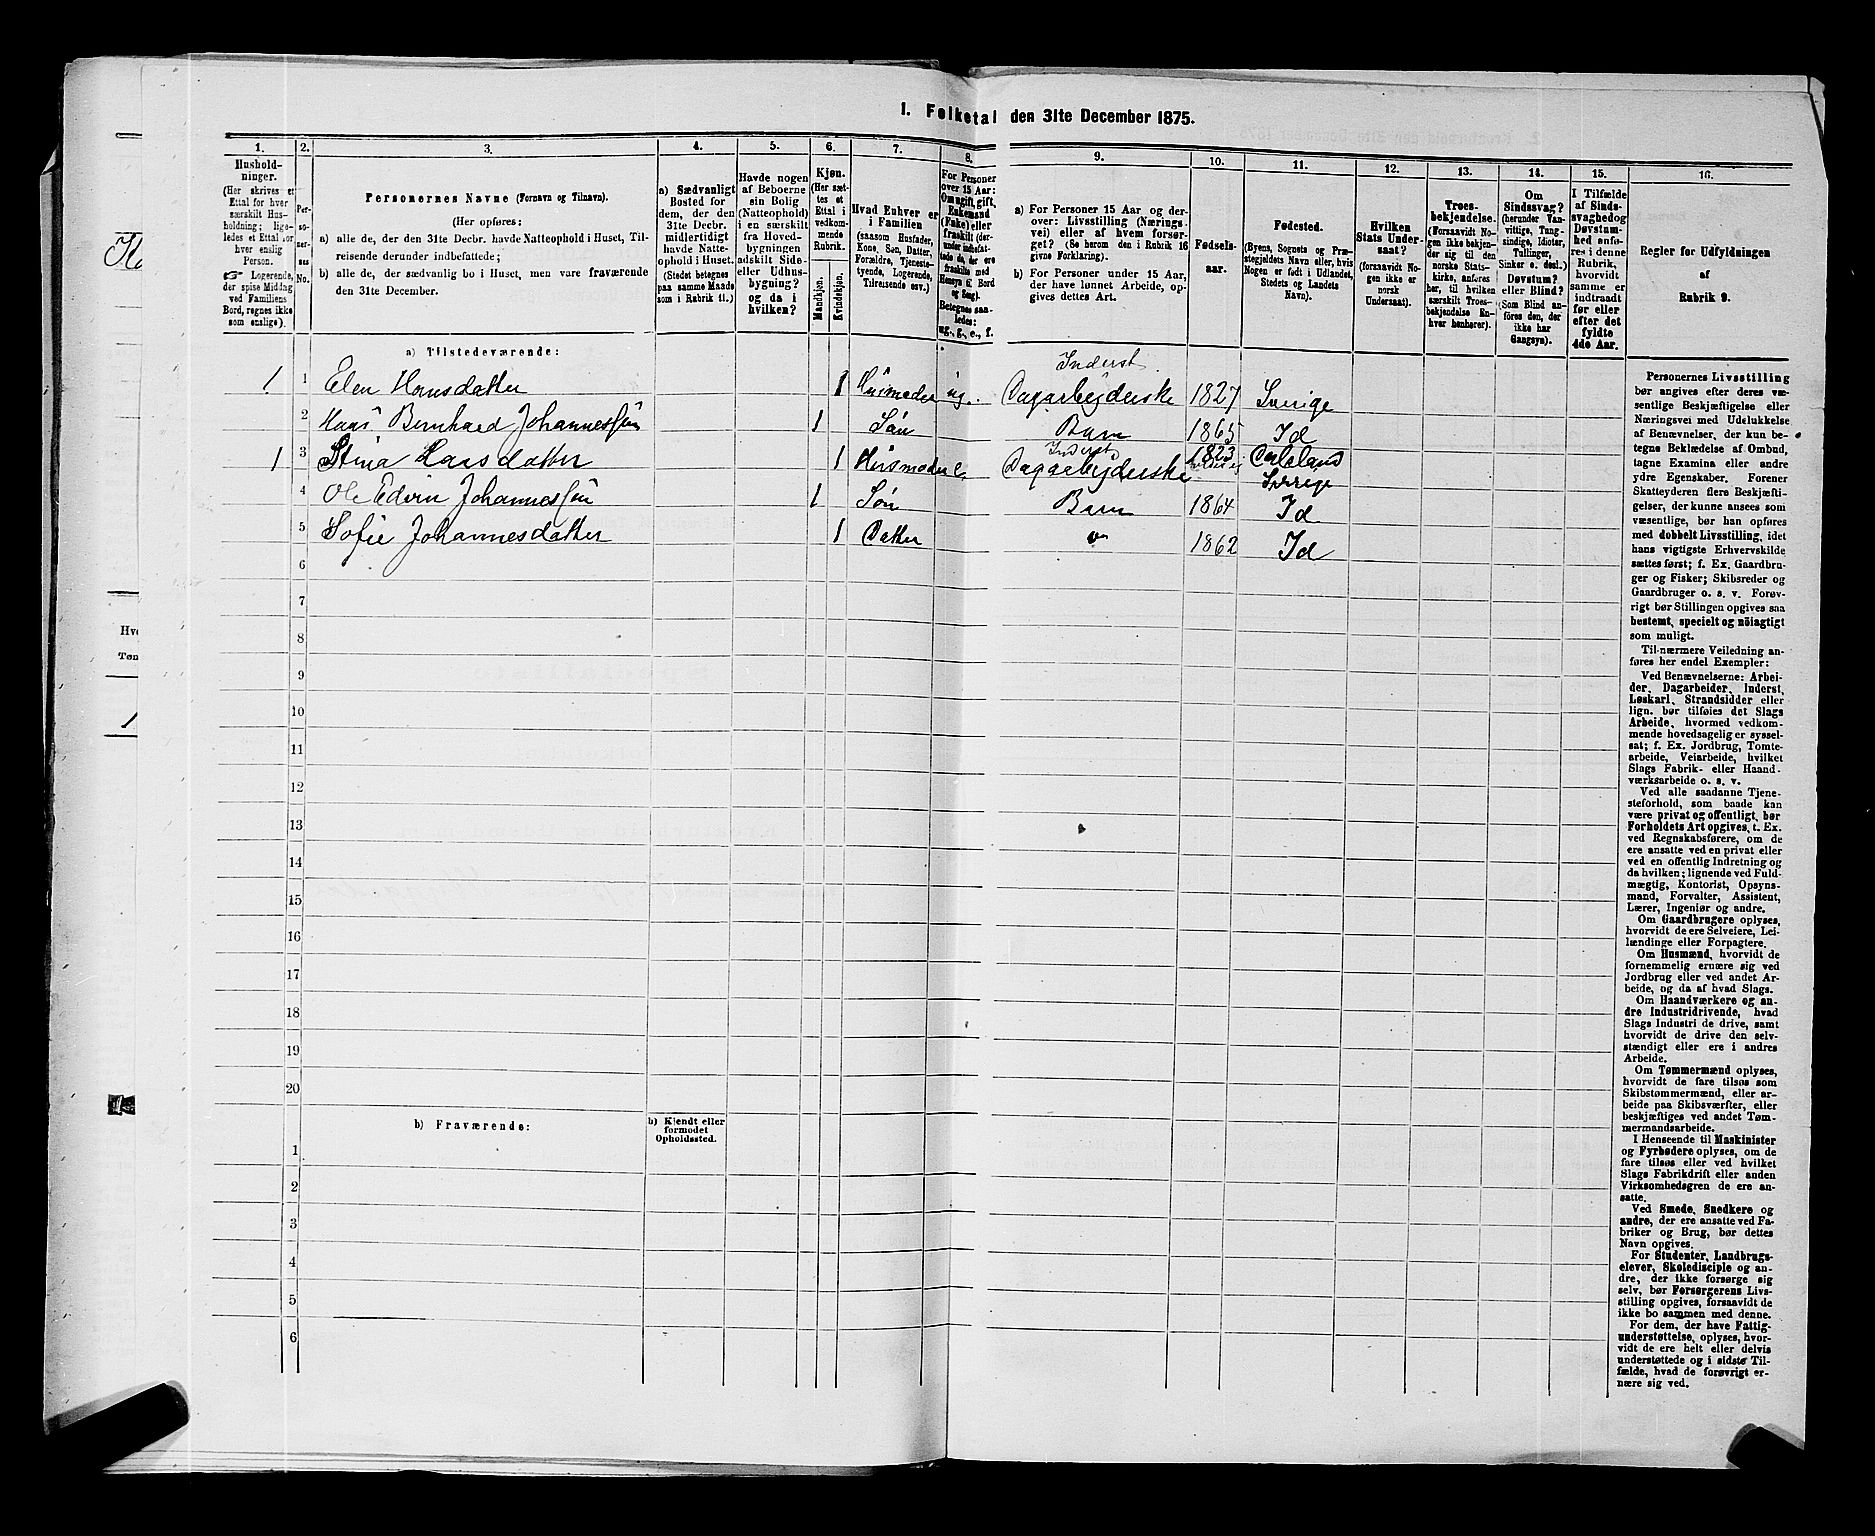 1. Folketal den 31te December 1875.
1. 2. 3. 4. 5. 6. 7. 8. 9. 10. 11. 12. 13. 14. 15. 16.
Hushold-
ninger.
(Her skrives et
Ettal for hver
særskilt Hus-
holdning; lige-
ledes et Ettal for
hver enslig
Person.
☞ Logerende,
der spise Middag
ved Familiens
Bord, regnes ikke
som enslige).
Per-
so-
ner-
nes
No.
Personernes Navne (Fornavn og Tilnavn).
(Her opføres:
a) alle de, der den 31te Decbr. havde Natteophold i Huset, Til-
reisende derunder indbefattede;
b) alle de, der sædvanlig bo i Huset, men vare fraværende
den 31te December.
a) Sædvanligt
Bosted for
dem, der den
31te Decbr.
midlertidigt
havde Natte-
ophold i Huset.
(Stedet betegnes
paa samme Maade
som i Rubrik 11.)
Havde nogen
af Beboerne
sin Bolig
(Natteophold)
i en særskilt
fra Hoved-
bygningen
adskilt Side-
eller Udhus-
bygning?
og da i
hvilken?
Kjøn.
(Her sæt-
tes et
Ettal i
vedkom-
mende
Rubrik.
Mandkjøn.
Kvindekjøn.
Hvad Enhver er
i Familien
(saasom Husfader,
Kone, Søn, Datter,
Forældre, Tjeneste-
tyende, Logerende,
Tilreisende osv.)
For Personer
over 15 Aar:
Om ugift, gift,
Enkemand
(Enke) eller
fraskilt (der-
under indbefat-
tede de, der ere
fraskilte med
Hensyn til Bord
og Seng).
Betegnes saa-
ledes:
ug., g., e., f.
a) For Personer 15 Aar og der-
over: Livsstilling (Nærings-
vei) eller af hvem forsør-
get? (Se herom den i Rubrik 16
givne Forklaring).
b) For Personer under 15 Aar,
der have lønnet Arbeide, op-
gives dettes Art.
Fødsels-
aar.
Fødested.
(Byens, Sognets og Præ-
stegjeldets Navn eller, hvis
Nogen er født i Udlandet,
Stedets og Landets
Navn).
Hvilken
Stats Under-
saat?
(forsaavidt No-
gen ikke er
norsk
Undersaat).
Troes-
bekjendelse.
(Forsaavidt No-
gen ikke bekjen-
der sig til den
norske Stats-
kirke, anføres
her, til hvilken
særskilt Troes-
bekjendelse En-
hver henhører).
Om
Sindssvag?
(herunder Van-
vittige, Tung-
sindige, Idioter,
Tullinger,
Sinker o. desl.)
Døvstum?
eller Blind?
(Som Blind an-
føres den, der
ikke har
Gangsyn).
I Tilfælde
af Sinds-
svaghed og
Døvstum-
hed anfø-
res i denne
Rubrik,
hvorvidt
samme er
indtraadt
før eller
efter det
fyldte
4de Aar.
Regler for Udfyldningen
af
Rubrik 9.
a) Tilstedeværende:
Inderst.
1 1 Elen Hansdatter 1 Husmoder ug. Dagarbeiderske 1827 Sverige
2 Hans Bernhard Johannessen 1 Søn Barn 1865 Id
Inderst
1 3 Stina Larsdatter 1 Husmoder e. Dagarbeiderske 1823
Sverige
4 Ole Edvin Johannessen 1 Søn Barn 1864 Id
5 Sofie Johannesdatter 1 Datter " 1862 Id
6
7
8
9
10
11
12
13
14
15
16
17
18
19
20
b) Fraværende:
b) Kjendt eller
formodet
Opholdssted.
1
2
3
4
5
6
Personernes Livsstilling
bør angives efter deres væ-
sentlige Beskjæftigelse eller
Næringsvei med Udelukkelse
af Benævnelser, der kun be-
tegne Beklædelse af Ombud,
tagne Examina eller andre
ydre Egenskaber. Forener
Skatteyderen flere Beskjæfti-
gelser, der kunne ansees som
væsentlige, bør han opføres
med dobbelt Livsstilling, idet
hans vigtigste Erhvervskilde
sættes først; f. Ex. Gaardbru-
ger og Fisker; Skibsreder og
Gaardbruger o. s. v. Forøv-
rigt bør Stillingen opgives saa
bestemt, specielt og nöiagtigt
som muligt.
Til nærmere Veiledning an-
føres her endel Exempler:
Ved Benævnelserne: Arbei-
der, Dagarbeider, Inderst,
Løskarl, Strandsidder eller
lign. bør tilføies det Slags
Arbeide, hvormed vedkom-
mende hovedsagelig er syssel-
sat; f. Ex. Jordbrug, Tomte-
arbeide, Veiarbeide, hvilket
Slags Fabrik- eller Haand-
værksarbeide o. s. v.
Ved alle saadanne Tjene-
steforhold, som baade kan
være privat og offentligt, bør
Forholdets Art opgives, t. Ex.
ved Regnskabsførere, om de
ere ansatte ved en privat eller
ved en offentlig Indretning og
da hvilken; lignende ved Fuld-
mægtig, Kontorist, Opsyns-
mand, Forvalter, Assistent,
Lærer, Ingeniør og andre.
Om Gaardbrugere oplyses,
hvorvidt de ere Selveiere, Lei-
lændinge eller Forpagtere.
Om Husmænd, hvorvidt de
fornemmelig ernære sig ved
Jordbrug eller ved andet Ar-
beide, og da af hvad Slags.
Om Haandværkere og an-
dre Industridrivende, hvad
Slags Industri de drive, samt
hvorvidt de drive den selv-
stændigt eller ere i andres
Arbeide.
Om Tømmermænd oplyses,
hvorvidt de fare tilsøs som
Skibstømmermænd, eller ar-
beide paa Skibsværfter, eller
beskjæftiges ved andet Tøm-
mermandsarbeide.
I Henseende til Maskinister
og Fyrbødere oplyses, om de
fare tilsøs eller ved hvilket
Slags Fabrikdrift eller anden
Virksomhedsgren de ere an-
satte.
Ved Smede, Snedkere og
andre, der ere ansatte ved Fa-
briker og Brug, bør dettes
Navn opgives.
For Studenter, Landbrugs-
elever, Skoledisciple og an-
dre, der ikke forsørge sig
selv, bør Forsørgerens Livs-
stilling opgives, forsaavidt de
ikke bo sammen med denne.
For dem, der have Fattig-
understøttelse, oplyses, hvor-
vidt de ere helt eller delvis
understøttede og i sidste Til-
fælde, hvad de forøvrigt er-
nære sig ved.